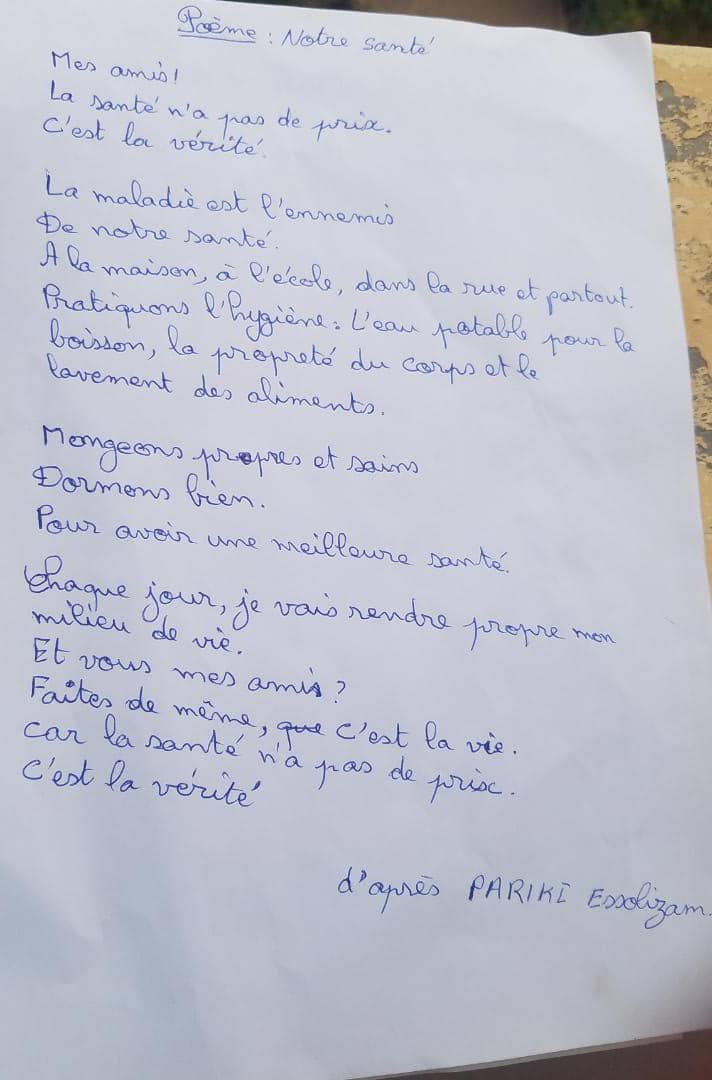 Poème : Notre santé
Mes amis!
La santé n'a pas de prix.
C'est la vérité.
La maladie est l'ennemis
De notre santé.
A la maison, à l'école, dans la rue et partout.
Pratiquons l'hygiène : L'eau potable pour la
boisson, la propreté du corps et le
lavement des aliments.
Mangeons propres et sains
Dormons bien.
Pour avoir une meilleure santé.
Chaque jour, je vais rendre propre mon
milieu de vie.
Et vous mes amis ?
Faites de même, que c'est la vie.
car la santé n'a pas de prix.
C'est la vérité
d'après PARIKI Essolizam.